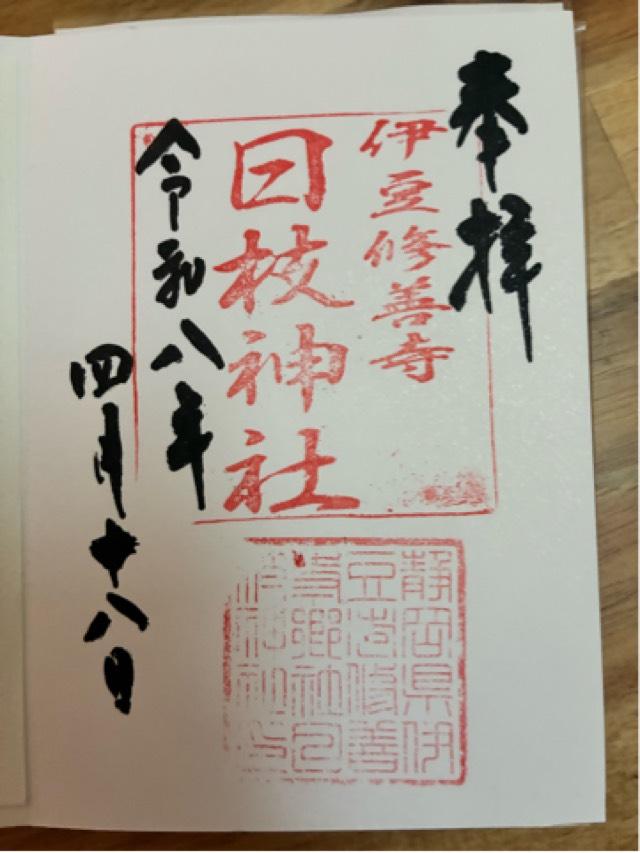 奉拝
伊豆修善寺
日枝神社
令和八年
四月十八日
静岡県伊
豆市修善
寺郷社日
枝神社印